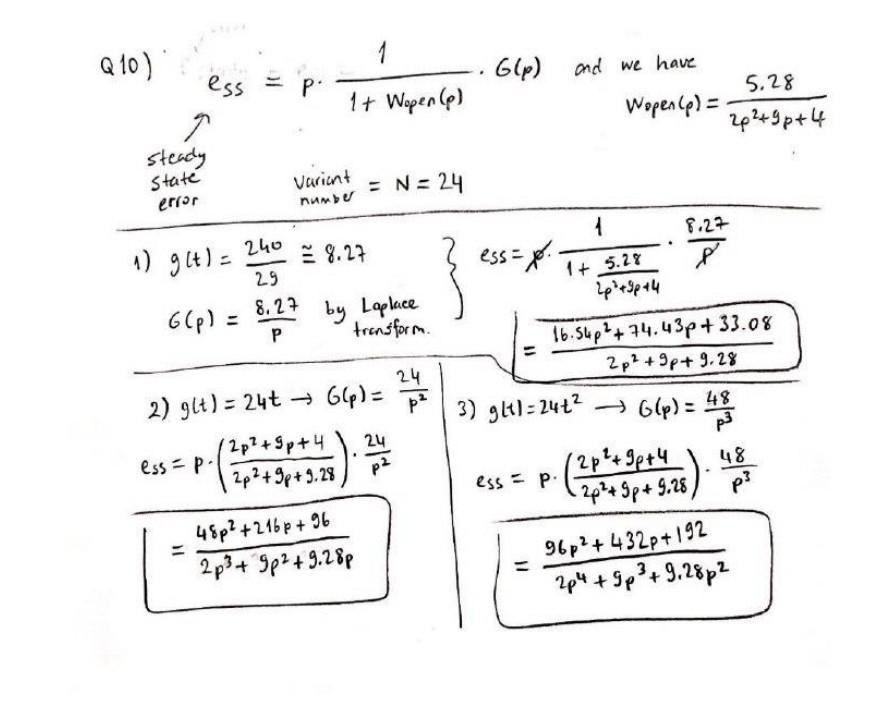 Q10) ess = p · 1 / (1 + Wopen(p)) · G(p) and we have Wopen(p) = 5.28 / (2p²+9p+4)
steady state error
variant number = N = 24
1) g(t) = 240/29 ≅ 8.27
G(p) = 8.27/p by Laplace transform.
ess = p · 1 / (1 + 5.28/(2p²+9p+4)) · 8.27/p
= (16.54p² + 74.43p + 33.08) / (2p² + 9p + 9.28)
2) g(t) = 24t → G(p) = 24/p²
ess = p · ((2p²+9p+4) / (2p²+9p+9.28)) · 24/p²
= (48p²+216p+96) / (2p³+9p²+9.28p)
3) g(t) = 24t² → G(p) = 48/p³
ess = p · ((2p²+9p+4) / (2p²+9p+9.28)) · 48/p³
= (96p²+432p+192) / (2p⁴+9p³+9.28p²)